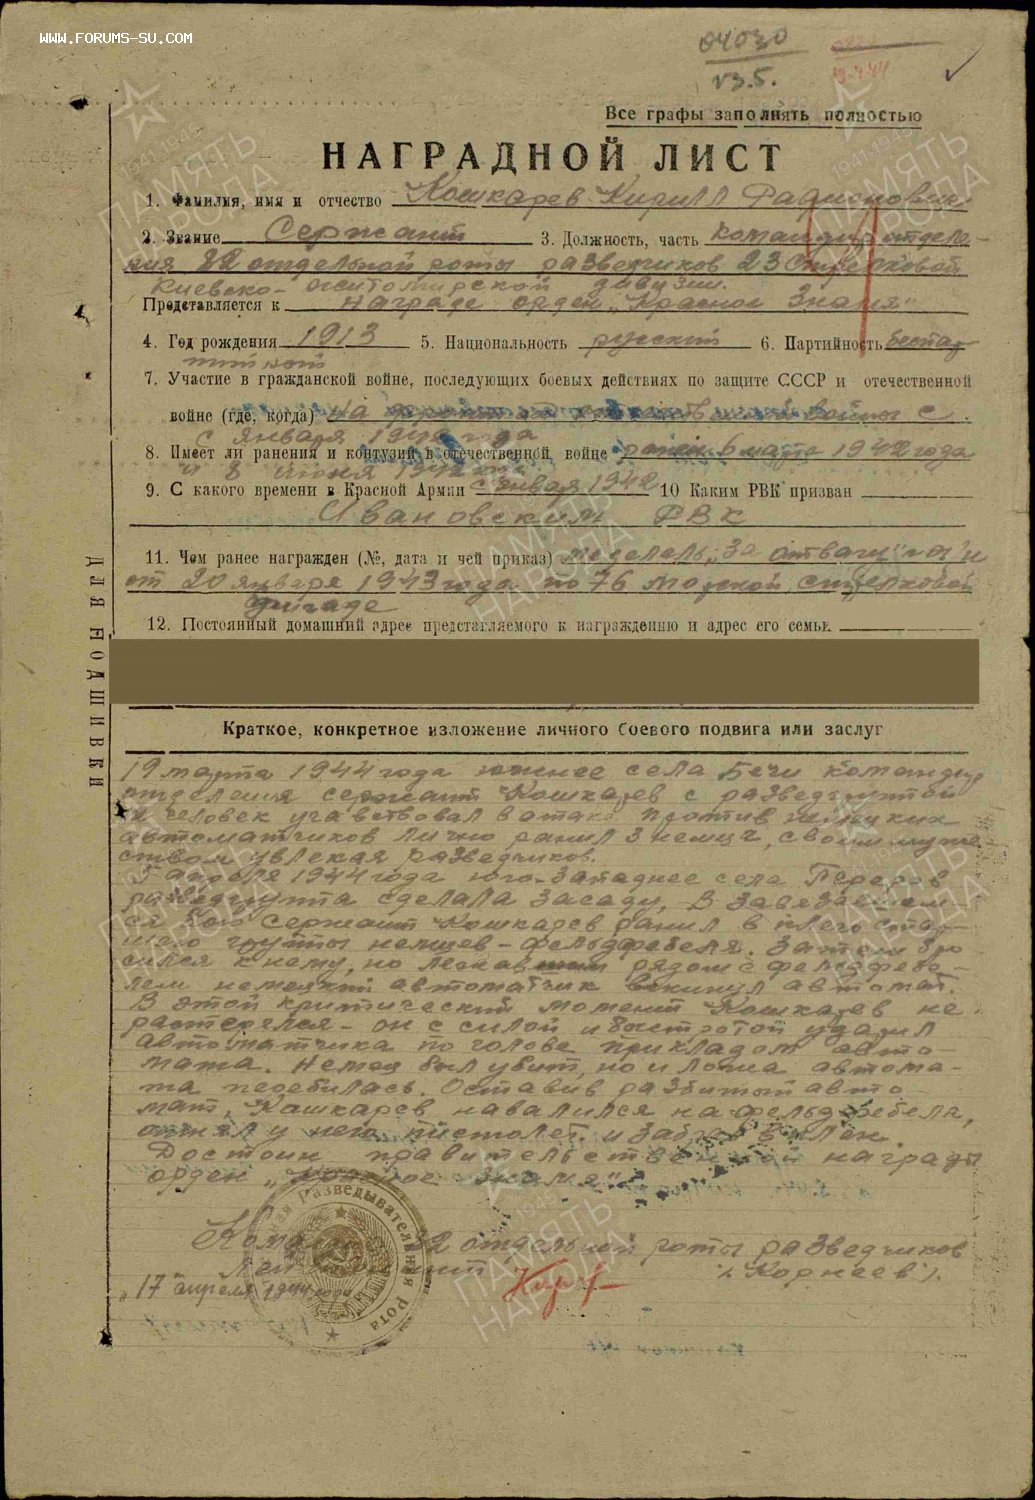 WWW.FORUMS-SU.COM
04030
13.5.
Все графы заполнять полностью
НАГРАДНОЙ ЛИСТ
1. Фамилия, имя и отчество Кошкарев Кирилл Радионович
2. Звание Сержант 3. Должность, часть командир отделе-
ния 22 отдельной роты разведчиков 23 Стрелковой
Киевско-житомирской дивизии.
Представляется к награде орден „Красное Знамя"
4. Год рождения 1913 5. Национальность русский 6. Партийность беспар
тийный
7. Участие в гражданской войне, последующих боевых действиях по защите СССР и отечественной
войне (где, когда) На фронте отечественной войны с
с января 1942 года
8. Имеет ли ранения и контузии в отечественной войне ранен 6 марта 1942 года
и 8 июня 1942
9. С какого времени в Красной Армии с января 1942 10 Каким РВК призван
Ивановским РВК
11. Чем ранее награжден (№, дата и чей приказ) медалью „За отвагу"
от 20 января 1943 года по 76 морской стрелковой
бригаде
12. Постоянный домашний адрес представляемого к награждению и адрес его семьи
ДЛЯ ПОДШИВКИ
Краткое, конкретное изложение личного боевого подвига или заслуг
19 марта 1944 года южнее села Бечи командир
отделения сержант Кошкарев с разведгруппой
человек участвовал в атаке против немецких
автоматчиков лично ранил 3 немца, своим муже
ством увлекая разведчиков.
5 апреля 1944 года юго-западнее села Переров
разведгруппа сделала засаду. В завязавшем-
ся бою сержант Кошкарев ранил в плечо стар-
шего группы немцев - фельдфебеля. Затем бро
сился к нему, но лежавший рядом с фельдфебе-
лем немецкий автоматчик вскинул автомат.
В этой критический момент Кошкарев не
растерялся - он с силой и быстротой ударил
автоматчика по голове прикладом авто-
мата. Немец был убит, но и ложа автома-
та перебилась. Оставив разбитый авто
мат, Кошкарев навалился на фельдфебеля,
отнял у него пистолет и забрал в плен.
Достоин правительственной награды
орден „Красное знамя"
Разведывательная Рота
Командир 22 отдельной роты разведчиков
лейтенант (Корнеев).
„17" апреля 1944 года
ПАМЯТЬ НАРОДА
1941-1945